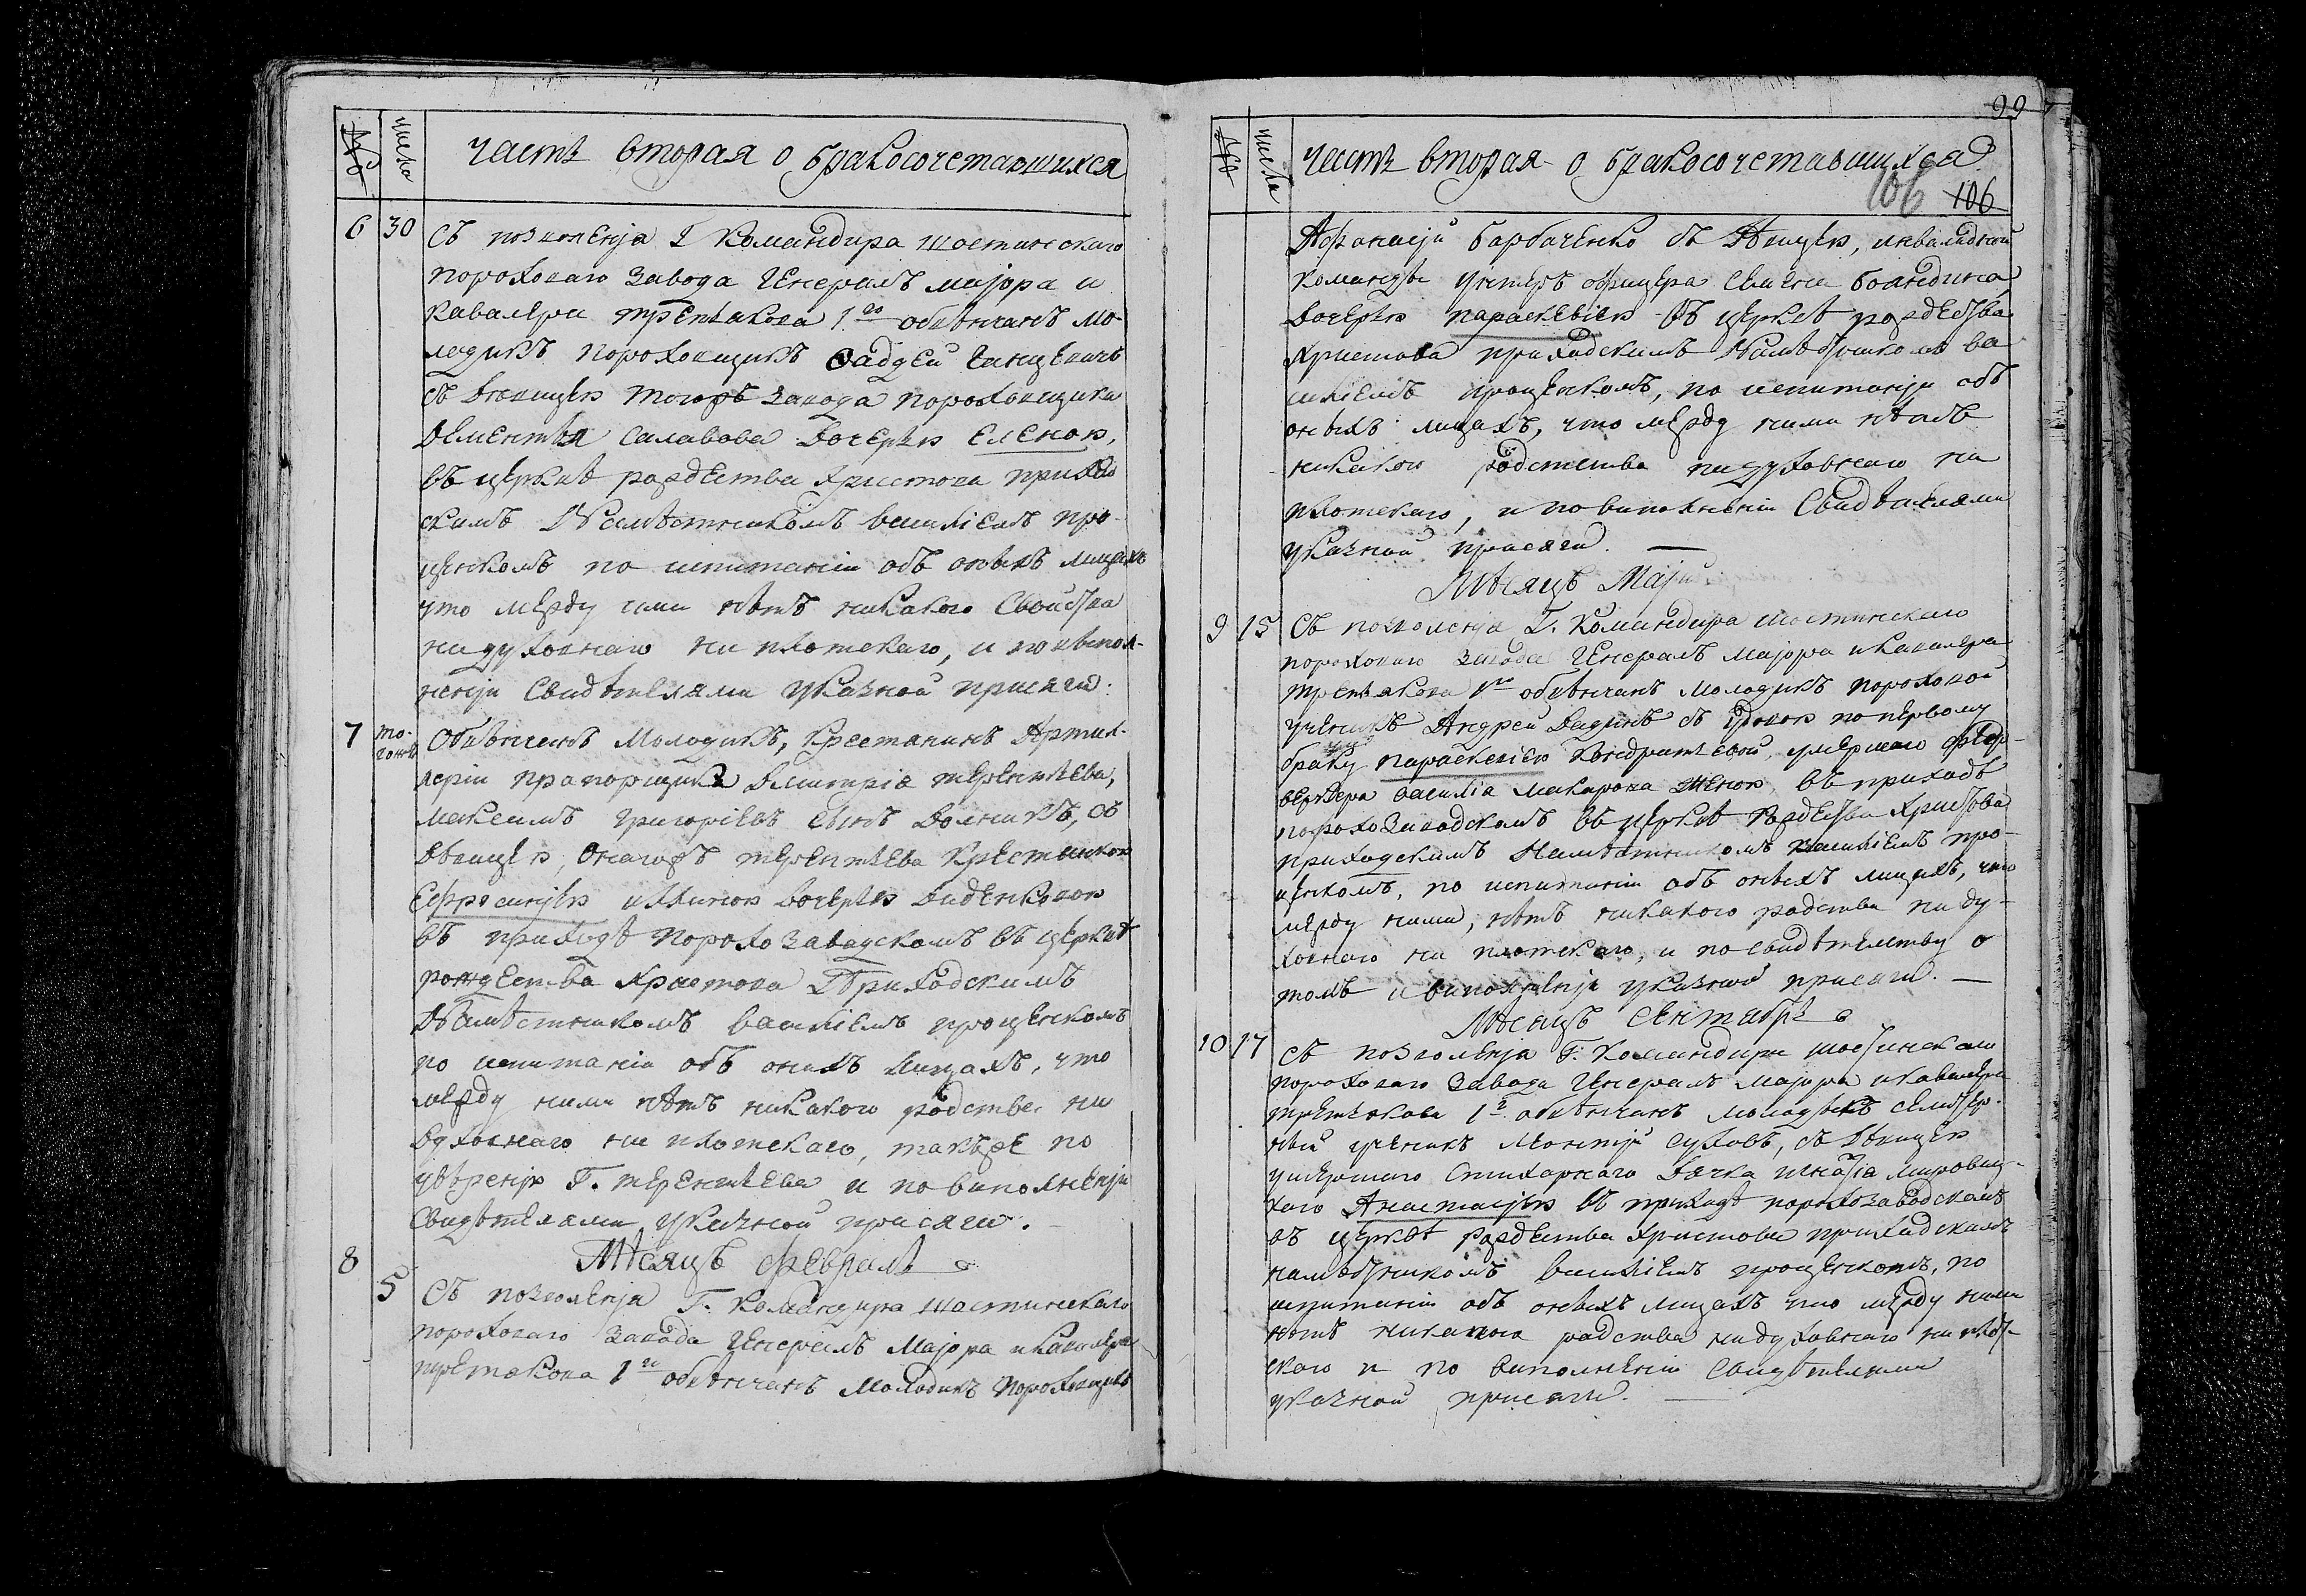 № числа часть вторая о бракосочетавшихся
6 30 Съ позволенія Г Командира Шостинскаго
пороховаго завода Генералъ маіора и
кавалера Третьякова 1го обвѣнчанъ мо-
лодикъ пороховщикъ Фаддей
съ дѣвицею тогожъ завода пороховщика
Дементія Салавова дочерью Еленою,
въ церквѣ рождества Христова приход
скимъ Намѣстникомъ василіемъ про-
ценкомъ по испитаніи объ оныхъ лицахъ
что между ими нѣтъ никакого свойства
ни духовнаго ни плотскаго, и по випол-
неніи свидѣтелями указной присяги.
7 то-
гожъ Обвѣнчанъ молодикъ, крестянинъ Артил-
леріи прапорщика Димитріа терентіева,
максимъ григоріевъ сынъ Долникъ, съ
дѣвицею, онагожъ терентіева крестянкою
Ефросиніею дочерью Диденковою
въ приходѣ порохозаводскомъ въ церквѣ
рождества Христова Приходскимъ
Намѣстникомъ василіемъ проценкомъ
по испитаніи объ онихъ лицахъ, что
между ними нѣтъ никакого родства ни
духовнаго ни плотскаго, такъже по
увѣренію Г. терентіева и по виполненіи
свидѣтелями указной присяги.
8 Мѣсяцъ февраль
5 Съ позволенія Г. командира Шостинскаго
пороховаго завода Генералъ Маіора и кавалера
третякова 1го обвѣнчанъ молодикъ пороховщикъ
99
№ числа часть вторая о бракосочетавшихся
106 106
Афанасій Барбаченко съ дѣвицею, инвалидной
команды унтеръ офицера
дочерью параскевіею въ церквѣ рождества
Христова приходскимъ Намѣстникомъ ва
силіемъ проценкомъ, по испитаніи объ
оныхъ лицахъ, что между ними нѣтъ
никакого родства ни духовнаго ни
плотскаго, и по виполненіи свидѣтелями
указной присяги.
Мѣсяцъ Маій
9 15 Съ позволенія Г. Командира Шостинскаго
пороховаго завода Генералъ маіора и кавалера
третьякова 1го обвѣнчанъ молодикъ пороховой
ученикъ Андрей Дадинъ съ вдовою по первому
браку параскевіею Кондратіевой, умершаго фей-
веркера василіа Макарова женою, въ приходѣ
порохозаводскомъ въ церквѣ рождества христова
приходскимъ Намѣстникомъ василіемъ про-
ценкомъ, по испитаніи объ оныхъ лицахъ, что
между ними, нѣтъ никакого родства ни ду-
ховнаго ни плотскаго, и по свидѣтелству о
томъ и виполненіи указной присяги.
Мѣсяцъ Сентябрь
10 17 Съ позволенія Г: командира Шостинскаго
пороховаго завода Генералъ маіора и кавалера
третьякова 1го обвѣнчанъ молодикъ селитер-
ный ученикъ Суховъ, съ дѣвицею
умершаго стихарнаго дячка Игнатіа
каго Анастасіею въ приходѣ порохозаводскомъ
въ церквѣ рождества христова приходскимъ
намѣстникомъ василіемъ проценкомъ, по
испитаніи объ оныхъ лицахъ что между ними
нѣтъ никакого родства ни духовнаго ни плот-
скаго и по виполненіи свидѣтелями
указной присяги.